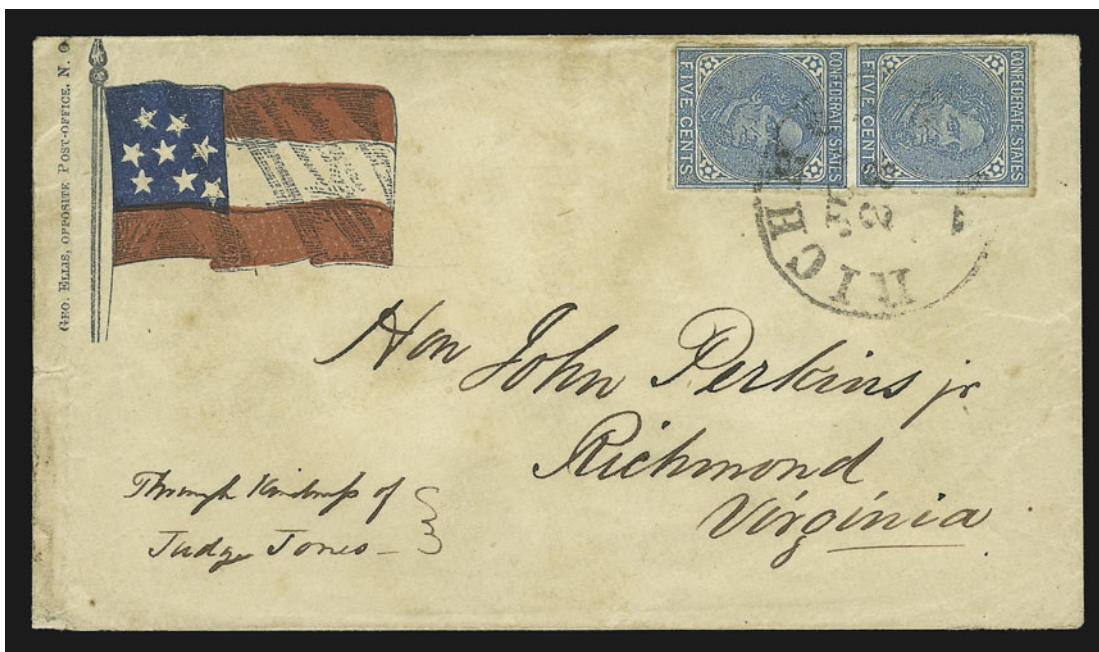 GEO. ELLIS, OPPOSITE POST-OFFICE, N. O.
CONFEDERATE STATES
FIVE CENTS
CONFEDERATE STATES
FIVE CENTS
RICH
Hon John Perkins jr
Richmond
Virginia
Through Kindness of
Judge Jones